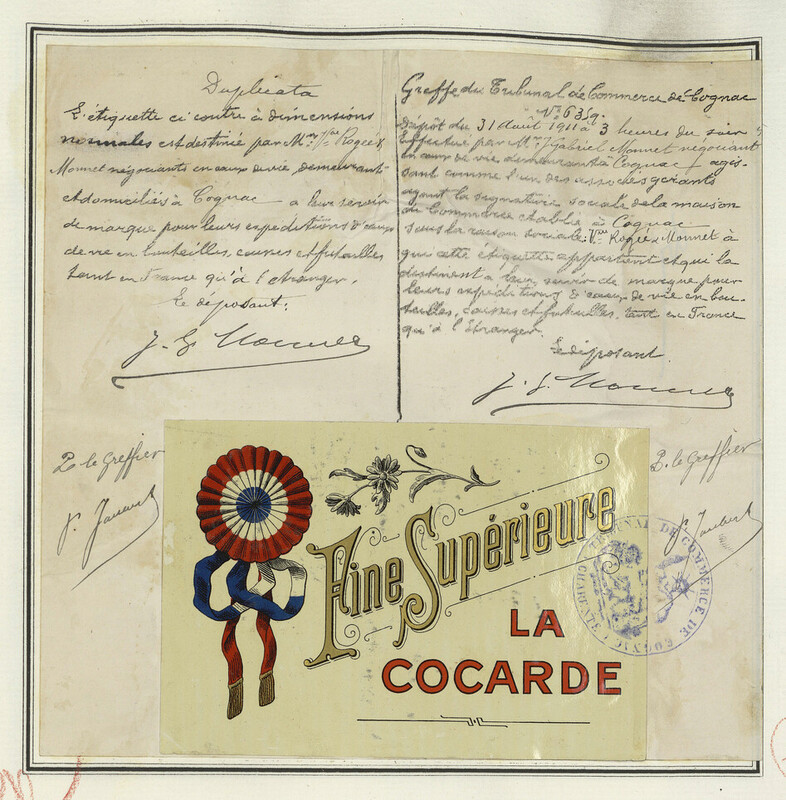 Duplicata
L'étiquette ci contre à dimensions
normales est destinée par Mm. Vve Rogée &
Monnet négociants en eaux de vie, demeurant
et domiciliés à Cognac a leur servir
de marque pour leurs expéditions d'eaux
de vie en bouteilles, caisses et futailles
tant en France qu'à l'étranger.
Le déposant.
J. G. Monnet
Greffe du Tribunal de Commerce de Cognac
No 6319.
Dépôt du 31 Août 1911 à 3 heures du soir
effectué par Mr. J. Gabriel Monnet négociant
en eaux de vie demeurant à Cognac agis-
sant comme l'un des associés gérants
ayant la signature sociale de la maison
de Commerce établie à Cognac
sous la raison sociale: Vve Rogée & Monnet à
qui cette étiquette appartient et qui la
destinent à leur servir de marque pour
leurs expéditions d'eaux de vie en bou-
teilles, caisses et futailles, tant en France
qu'à l'étranger.
Le déposant
J. G. Monnet
P. le Greffier
P. le Greffier
Fine Supérieure
LA
COCARDE
TRIBUNAL DE COMMERCE DE COGNAC (CHARENTE)